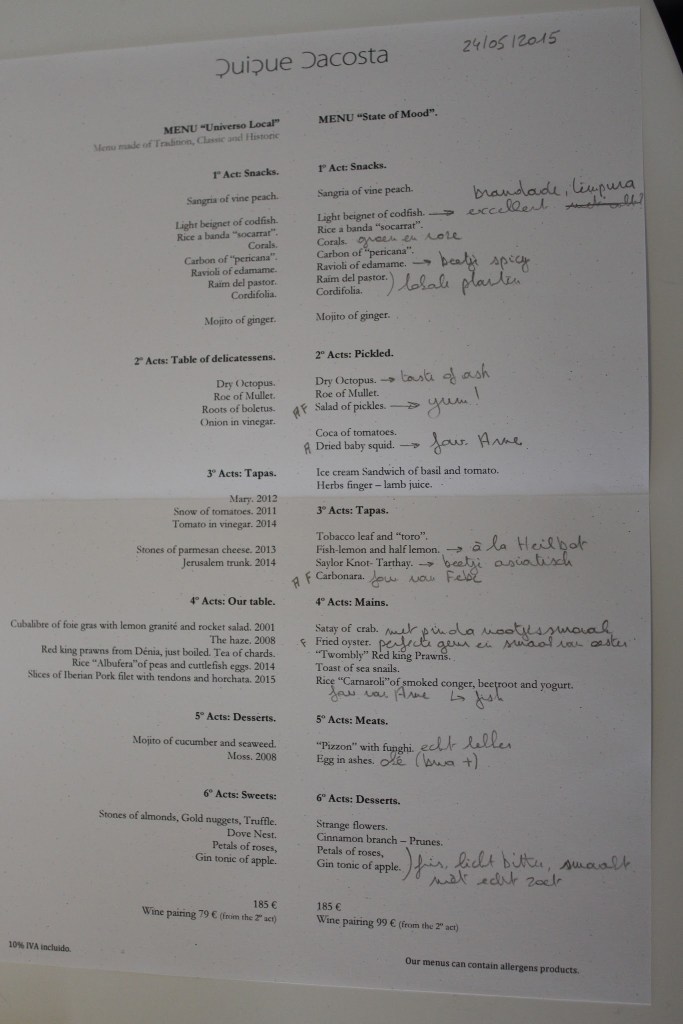 Quique Dacosta
24/05/2015
MENU "Universo Local"
Menu made of Tradition, Classic and Historic
1º Act: Snacks.
Sangria of vine peach.
Light beignet of codfish.
Rice a banda "socarrat".
Corals.
Carbon of "pericana".
Ravioli of edamame.
Raïm del pastor.
Cordifolia.
Mojito of ginger.
2º Acts: Table of delicatessens.
Dry Octopus.
Roe of Mullet.
Roots of boletus.
Onion in vinegar.
3º Acts: Tapas.
Mary. 2012
Snow of tomatoes. 2011
Tomato in vinegar. 2014
Stones of parmesan cheese. 2013
Jerusalem trunk. 2014
4º Acts: Our table.
Cubalibre of foie gras with lemon granité and rocket salad. 2001
The haze. 2008
Red king prawns from Dénia, just boiled. Tea of chards.
Rice "Albufera"of peas and cuttlefish eggs. 2014
Slices of Iberian Pork filet with tendons and horchata. 2015
5º Acts: Desserts.
Mojito of cucumber and seaweed.
Moss. 2008
6º Acts: Sweets:
Stones of almonds, Gold nuggets, Truffle.
Dove Nest.
Petals of roses,
Gin tonic of apple.
185 €
Wine pairing 79 € (from the 2º act)
10% IVA incluido.
MENU "State of Mood".
1º Act: Snacks.
Sangria of vine peach.
brandade, tempura
Light beignet of codfish. → excellent
Rice a banda "socarrat".
Corals. groen en roze
Carbon of "pericana".
Ravioli of edamame. → beetje spicy
Raïm del pastor. ) lokale planten
Cordifolia.
Mojito of ginger.
2º Acts: Pickled.
Dry Octopus. → taste of ash
Roe of Mullet.
AF Salad of pickles. → yum!
Coca of tomatoes.
A Dried baby squid. → fav. Arne
Ice cream Sandwich of basil and tomato.
Herbs finger – lamb juice.
3º Acts: Tapas.
Tobacco leaf and "toro".
Fish-lemon and half lemon. → à la Heilbot
Saylor Knot- Tarthay. → beetje asiatisch
AF Carbonara. fav van
4º Acts: Mains.
Satay of crab. met pinda nootjessmaak
F Fried oyster. perfecte geur en smaak van oester
"Twombly" Red king Prawns.
Toast of sea snails.
Rice "Carnaroli"of smoked conger, beetroot and yogurt.
fav van Arne ↳ fish
5º Acts: Meats.
"Pizzon" with funghi. echt lekker
Egg in ashes. olé
6º Acts: Desserts.
Strange flowers.
Cinnamon branch – Prunes.
Petals of roses,
Gin tonic of apple. ) fris, licht bitter, smaakt
niet echt zoet
185 €
Wine pairing 99 € (from the 2º act)
Our menus can contain allergens products.